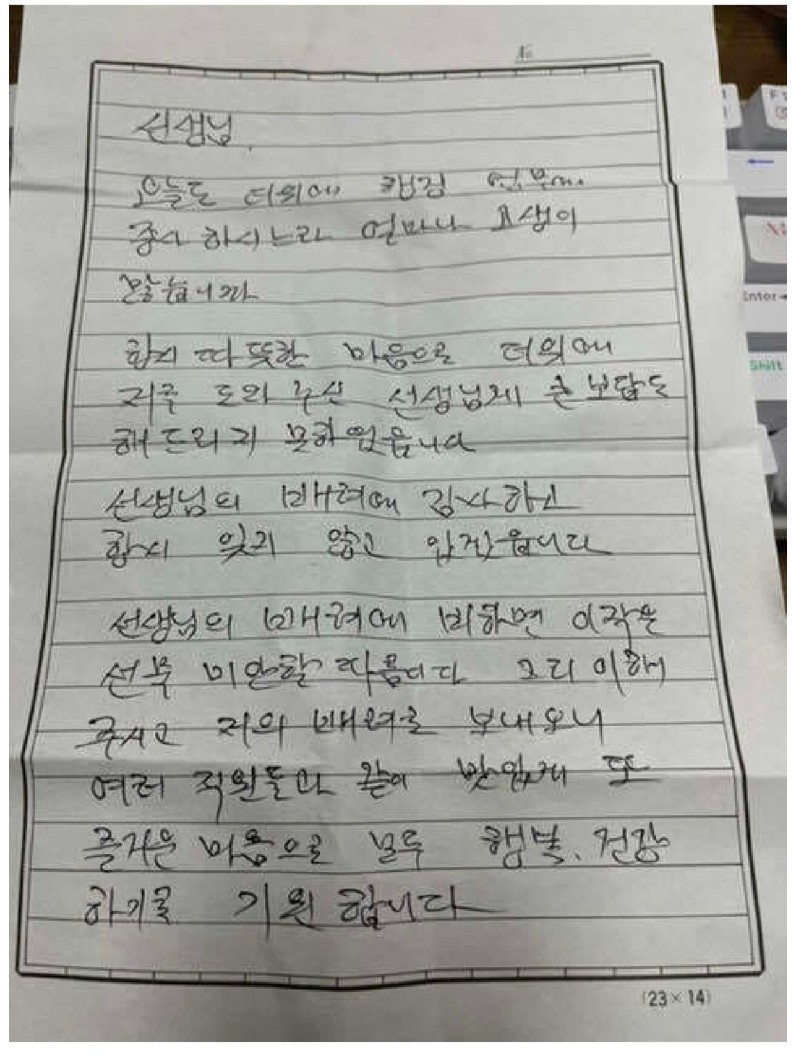 No
선생님.
오늘도 더위에 행정 업무에
종사 하시느라 얼마나 고생이
많습니까
항시 따뜻한 마음으로 더위에
저를 도와 주신 선생님게 큰 보답도
해 드리지 못하였읍니다
선생님의 배려에 감사하고
항시 잊지 않고 있겠읍니다
선생님의 배려에 비하면 이작은
선물 미안할 따름니다 그리 이해
주시고 저의 배려로 보내오니
여러 직원들과 같이 맛있게 또
즐거운 마음으로 모두 행복、건강
하기를 기원 합니다
(23×14)
Enter
Shift